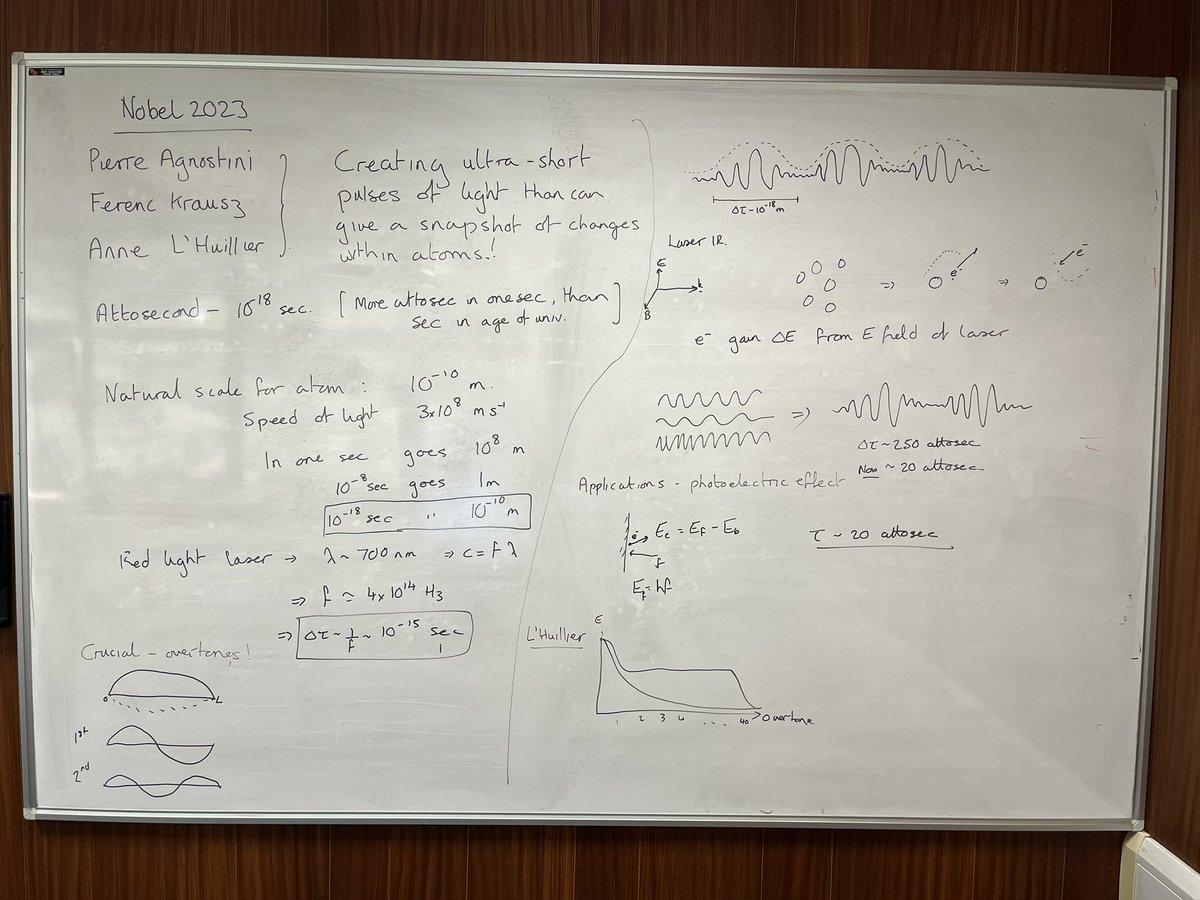 Nobel 2023
Pierre Agnostini
Ferenc Krausz
Anne L'Huillier
Creating ultra-short
pulses of light than can
give a snapshot of changes
within atoms!
Attosecond - 10^18 sec. [More attosec in one sec, than
sec in age of univ.]
Natural scale for atom : 10^-10 m.
Speed of light 3x10^8 ms^-1
In one sec goes 10^8 m
10^-8 sec goes 1m
10^-18 sec " 10^-10 m
Red light laser → λ ~ 700 nm ⇒ c = f λ
⇒ f ≃ 4x10^14 Hz
⇒ Δτ ~ 1/f ~ 10^-15 sec
Crucial - overtones!
0 L
1st
2nd
Δτ ~ 10^-18 m
Laser IR.
E
k
B
⇒ e⁻ ⇒ e⁻
e⁻ gain ΔE from E field of laser
⇒
Δτ ~ 250 attosec
Now ~ 20 attosec
Applications - photoelectric effect
e⁻ Ee = Ef - Eb
f
Ef = hf
τ ~ 20 attosec
L'Huillier
E
1 2 3 4 .... 40 Overtone